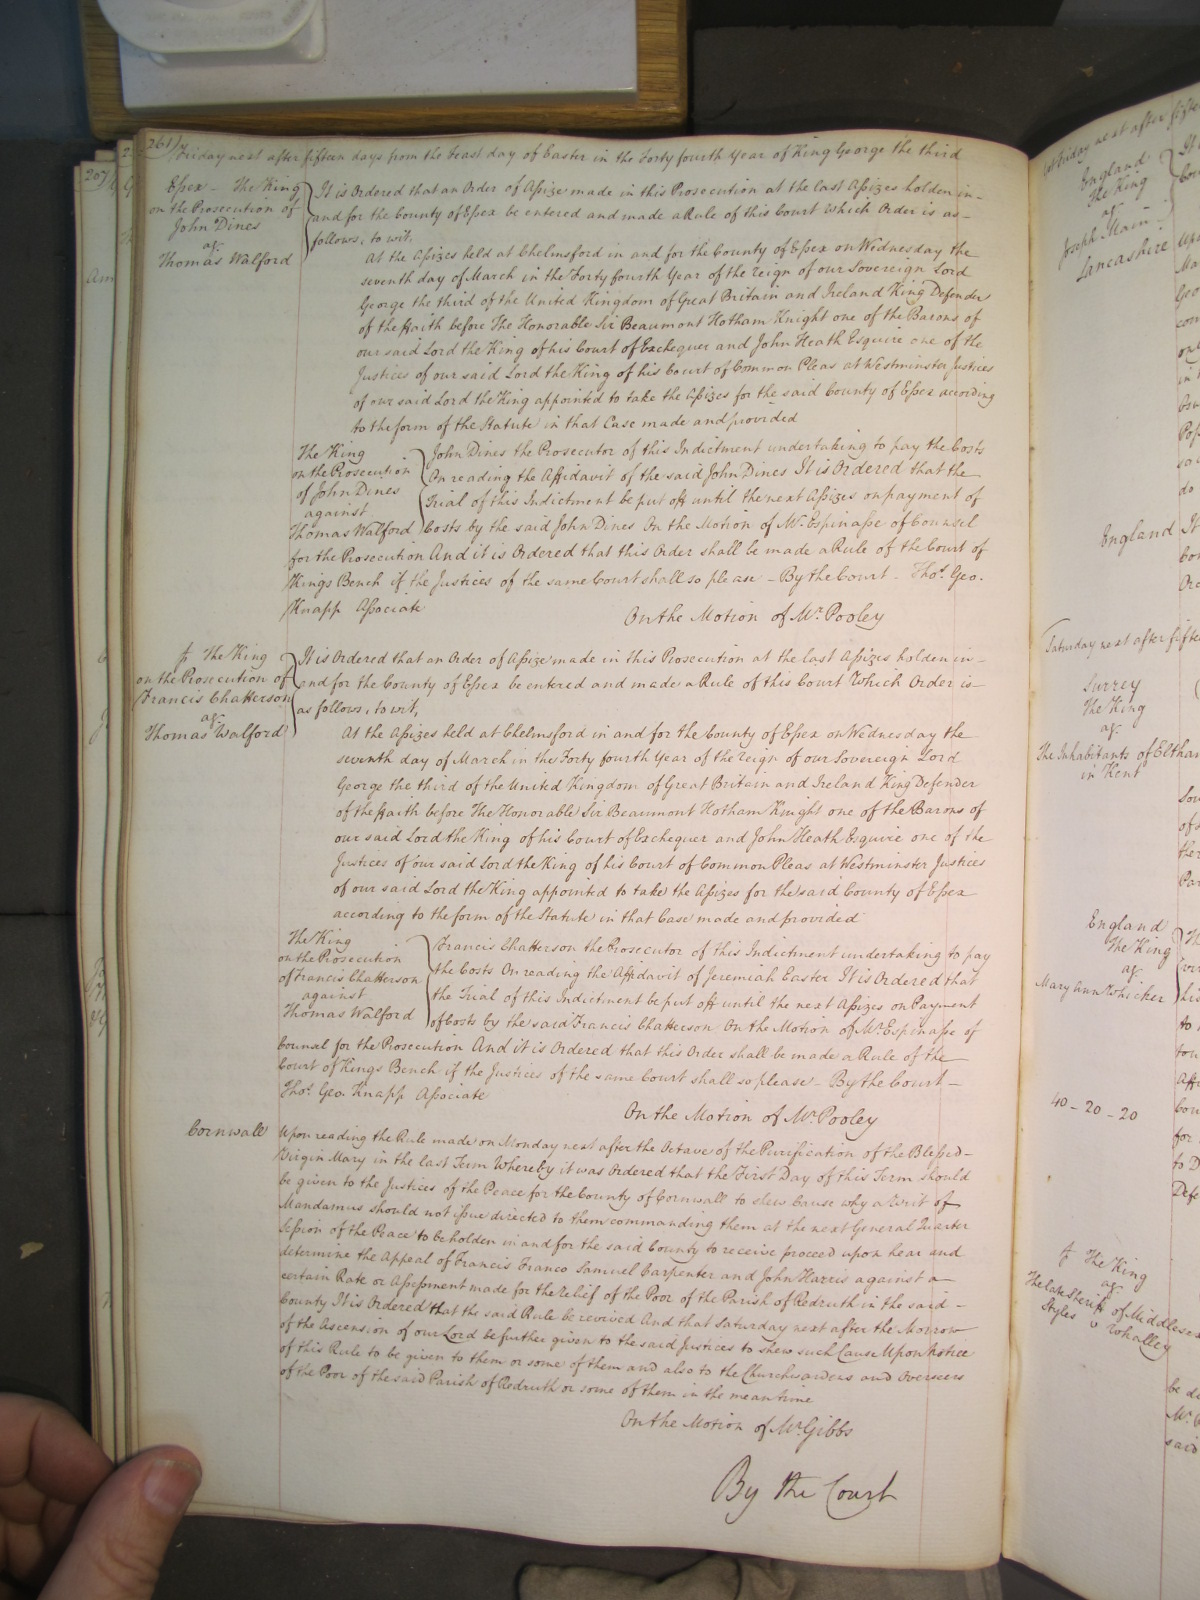 261
Friday next after fifteen days from the Feast day of Easter in the Forty fourth Year of King George the third
Essex - The King
on the Prosecution of
John Dines
agt
Thomas Walford
It is Ordered that an Order of Assize made in this Prosecution at the last Assizes holden in
and for the County of Essex be entered and made a Rule of this Court Which Order is as
follows, to wit,
At the Assizes held at Chelmsford in and for the County of Essex on Wednesday the
seventh day of March in the Forty fourth Year of the reign of our Sovereign Lord
George the third of the United Kingdom of Great Britain and Ireland King Defender
of the ffaith before The Honorable Sir Beaumont Hotham Knight one of the Barons of
our said Lord the King of his Court of Exchequer and John Heath Esquire one of the
Justices of our said Lord the King of his Court of Common Pleas at Westminster Justices
of our said Lord the King appointed to take the Assizes for the said County of Essex according
to the form of the Statute in that Case made and provided
The King
on the Prosecution
of John Dines
against
Thomas Walford
John Dines the Prosecutor of this Indictment undertaking to pay the Costs
On reading the Affidavit of the said John Dines It is Ordered that the
Trial of this Indictment be put off until the next Assizes on payment of
Costs by the said John Dines On the Motion of Mr. Espinasse of Counsel
for the Prosecution And it is Ordered that this Order shall be made a Rule of the Court of
Kings Bench if the Justices of the same Court shall so please - By the Court - Thos. Geo.
Knapp Associate
On the Motion of Mr. Pooley
The King
on the Prosecution of
Francis Chatterson
agt
Thomas Walford
It is Ordered that an Order of Assize made in this Prosecution at the last Assizes holden in
and for the County of Essex be entered and made a Rule of this Court Which Order is
as follows, to wit,
At the Assizes held at Chelmsford in and for the County of Essex on Wednesday the
seventh day of March in the Forty fourth Year of the reign of our Sovereign Lord
George the third of the United Kingdom of Great Britain and Ireland King Defender
of the ffaith before The Honorable Sir Beaumont Hotham Knight one of the Barons of
our said Lord the King of his Court of Exchequer and John Heath Esquire one of the
Justices of our said Lord the King of his Court of Common Pleas at Westminster Justices
of our said Lord the King appointed to take the Assizes for the said County of Essex
according to the form of the Statute in that Case made and provided
The King
on the Prosecution
of Francis Chatterson
against
Thomas Walford
Francis Chatterson the Prosecutor of this Indictment undertaking to pay
the Costs On reading the Affidavit of Jeremiah Easter It is Ordered that
the Trial of this Indictment be put off until the next Assizes on Payment
of Costs by the said Francis Chatterson On the Motion of Mr. Espinasse of
Counsal for the Prosecution And it is Ordered that this Order shall be made a Rule of the
Court of Kings Bench if the Justices of the same Court shall so please - By the Court -
Thos. Geo. Knapp Associate
On the Motion of Mr. Pooley
Cornwall
Upon reading the Rule made on Monday next after the Octave of the Purification of the Blessed
Virgin Mary in the last Term Whereby it was Ordered that the First Day of this Term should
be given to the Justices of the Peace for the County of Cornwall to shew Cause why a Writ of
Mandamus should not issue directed to them commanding them at the next General Quarter
Session of the Peace to be holden in and for the said County to receive proceed upon hear and
determine the Appeal of Francis Franco Samuel Carpenter and John Harris against a
certain Rate or Assessment made for the relief of the Poor of the Parish of Redruth in the said
County It is Ordered that the said Rule be revived And that Saturday next after the Morrow
of the Ascension of our Lord be further given to the said Justices to shew such Cause Upon Notice
of this Rule to be given to them or some of them and also to the Churchwardens and Overseers
of the Poor of the said Parish of Redruth or some of them in the mean time
On the Motion of Mr. Gibbs
By the Court
England
The King
agt
Joseph
Lancashire
England
Saturday next after
Surrey
The King
agt
The Inhabitants of Eltham
in Kent
England
The King
agt
Mary Ann Whicker
40 - 20 - 20
The King
agt
The late Sheriff of Middlesex
Styles v Whalley